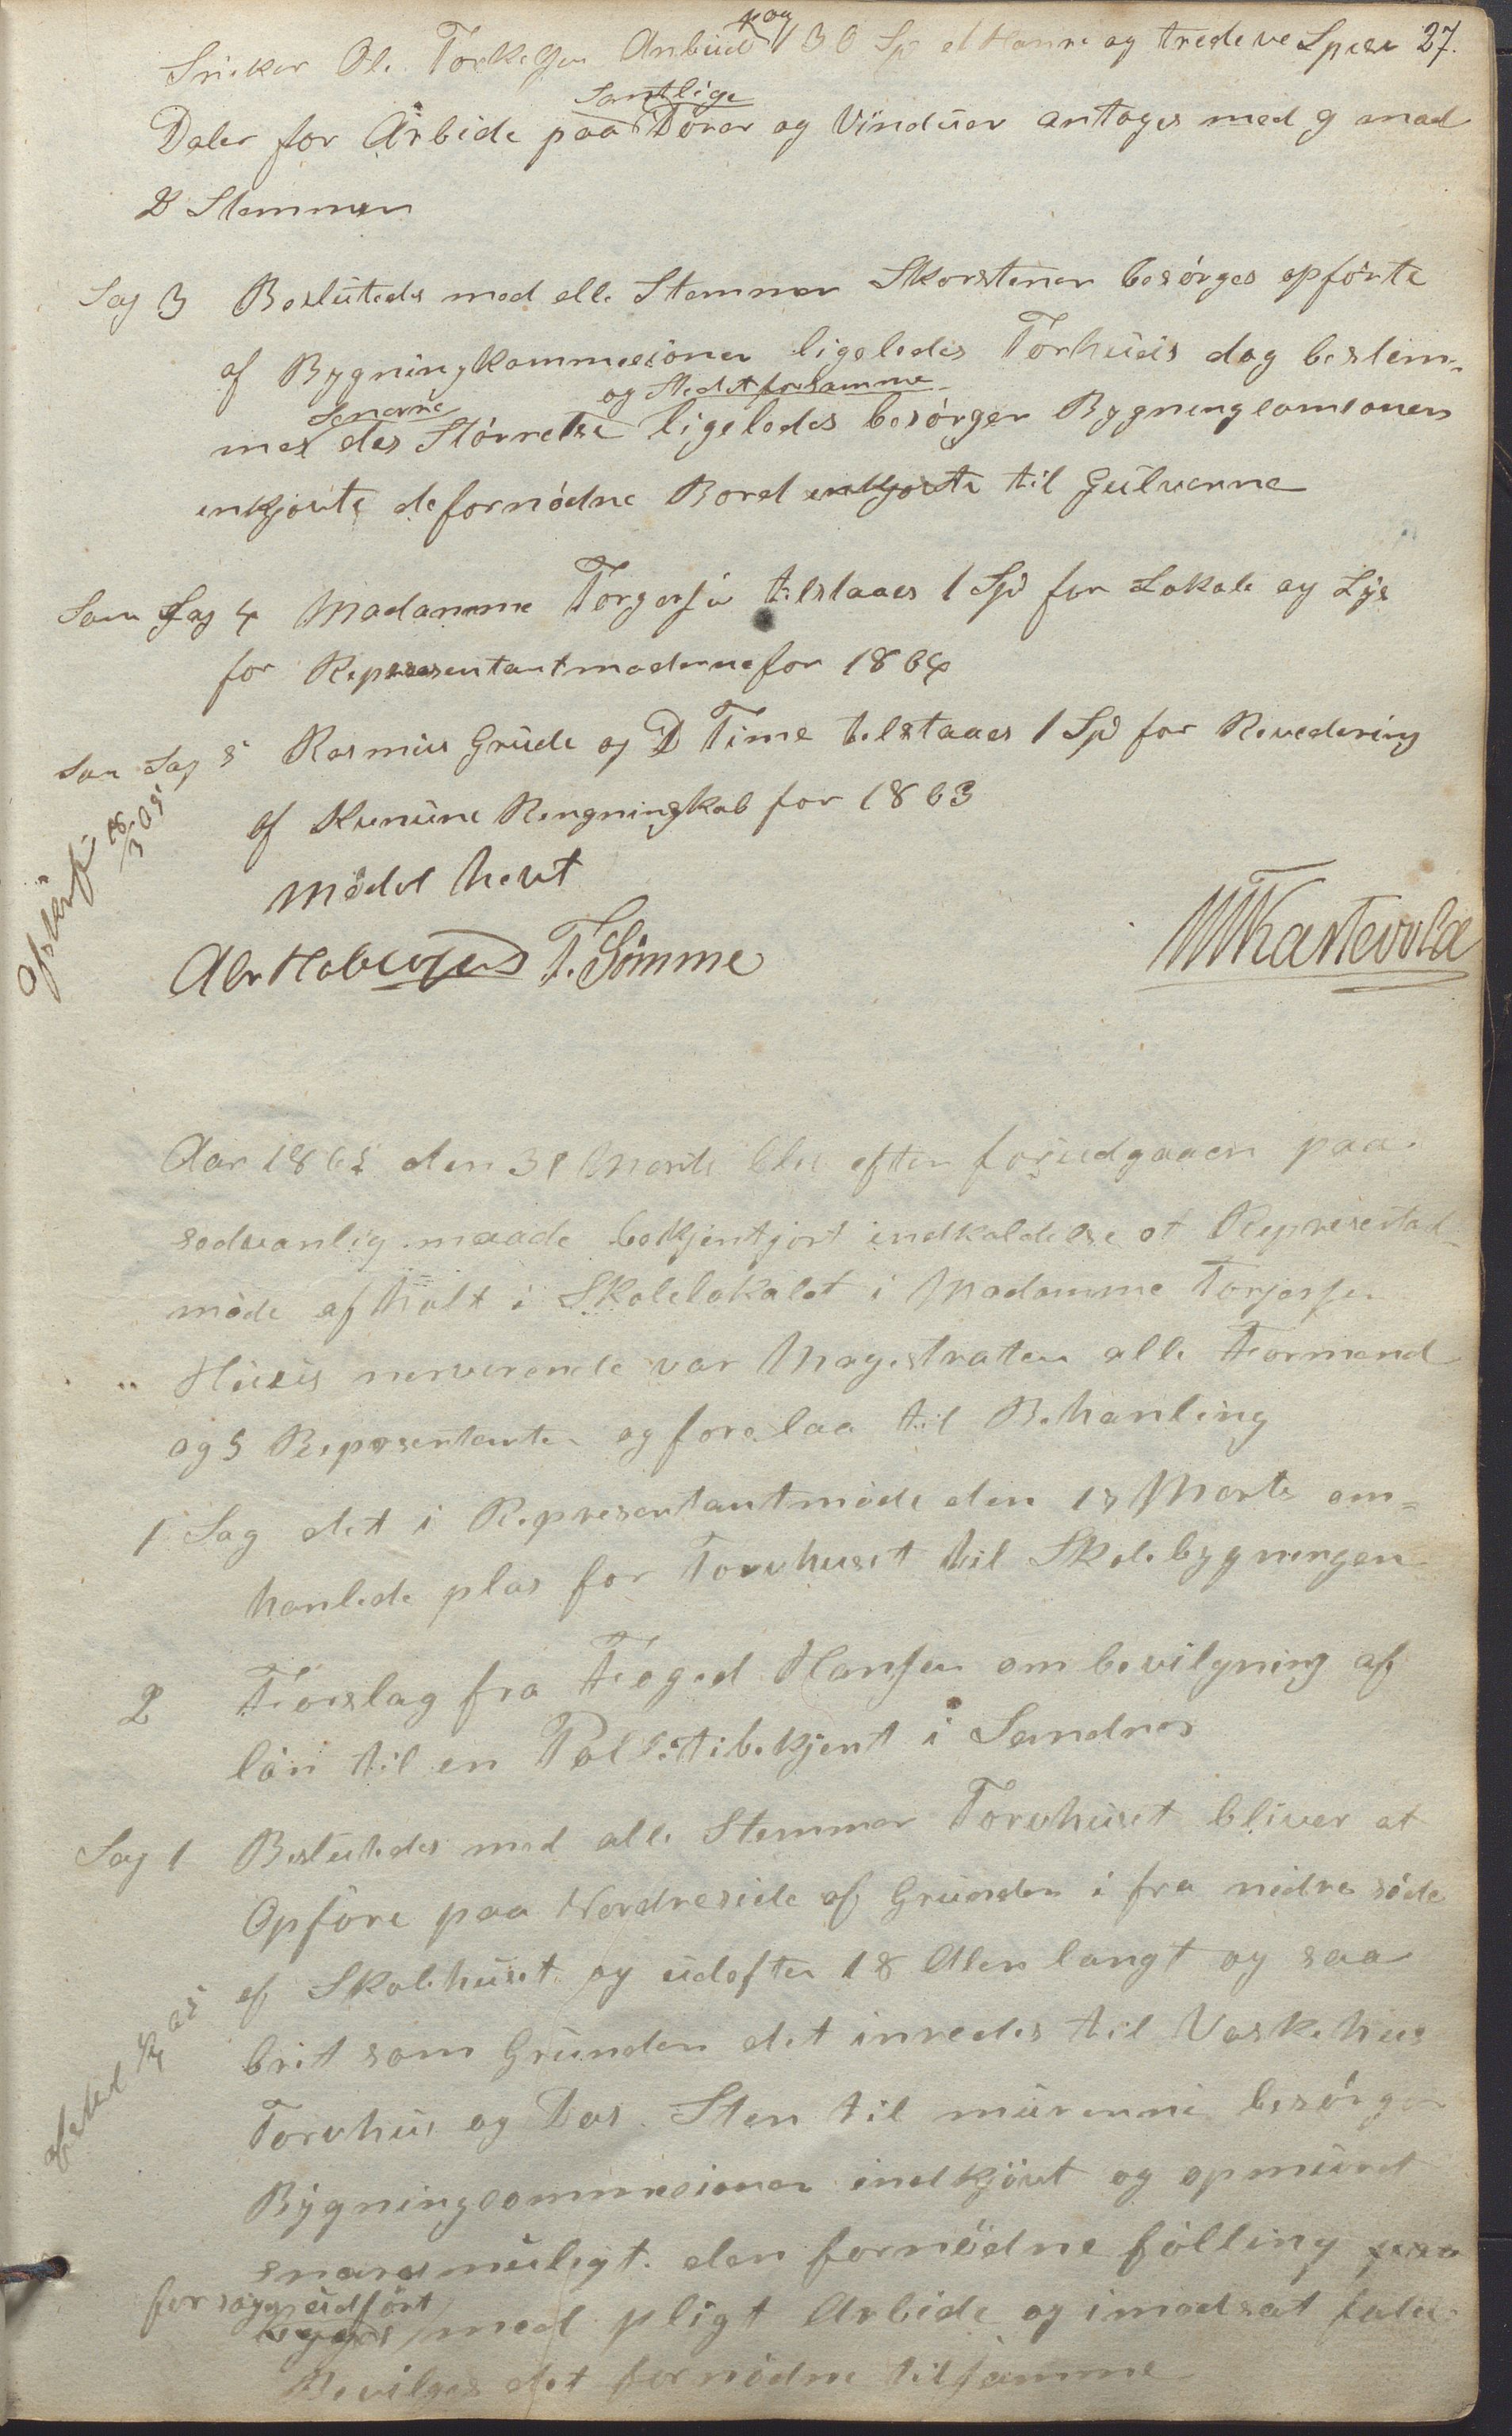 27.
Sneker Ol. Torkelsen Anbud paa 130 Sp et Hunre og tredeve Spesi
Daler for Arbide paa Samtlige Dører og Vinduer antages med 9 mod
2 Stemmer
Sag 3 Besluteds med alle Stemmer Skorstener besørges opførte
af Bygningkommesionen ligeledes Torhuus dog bestem-
mes Senere des Størrelse og Stedet for samme ligeledes besørger Bygningcomionen
inkjøvte de fornødne Bord inkjøvte til Gulvenne
Sam Sag 4 Madamme Torgersen tilstaaes 1 Spd for Lokale og Lys
for Represesentantmøderne for 1864
Sam Sag 5 Rasmus Grude og D Time tilstaaes 1 Spd for Revedering
af Kumune Rengningskab for 1863
Mødet hevt
Abr Haboesen T. Sømme
Aar 1865 den 31 Marts blev efter forudgaaen paa
sedvanlig maade bekjentjort indkaldelse et Representad
møde afholt i Skolelokalet i Madamme Torjersen
Huus nerverende var Magistraten alle Formend
og 5 Represententer og forelaa til Behanling
1 Sag det i Representantmøde den 18 Marts om-
hanlede plas for Torvhuset til Skolebygningen
2 Forslag fra Foged Hansen om bevilgning af
løn til en Pollitibetjent i Sandnes
Sag 1 Beslutedes med alle Stemmer Torvhuset bliver at
Opføre paa Nordreside af Grunden i fra nedre side
af Skolehuset og udefter 18 Alen langt og saa
brit som Grunden det inredes til Vaskehus
Torvhus og Das. Sten til murenne besørger
Bygningcommesionen indkjøvt og opmuret
snares muligt. den fornødne følling
forsøges udført med pligt Arbide og imodsat fald
Bevilges det fornødne til samme